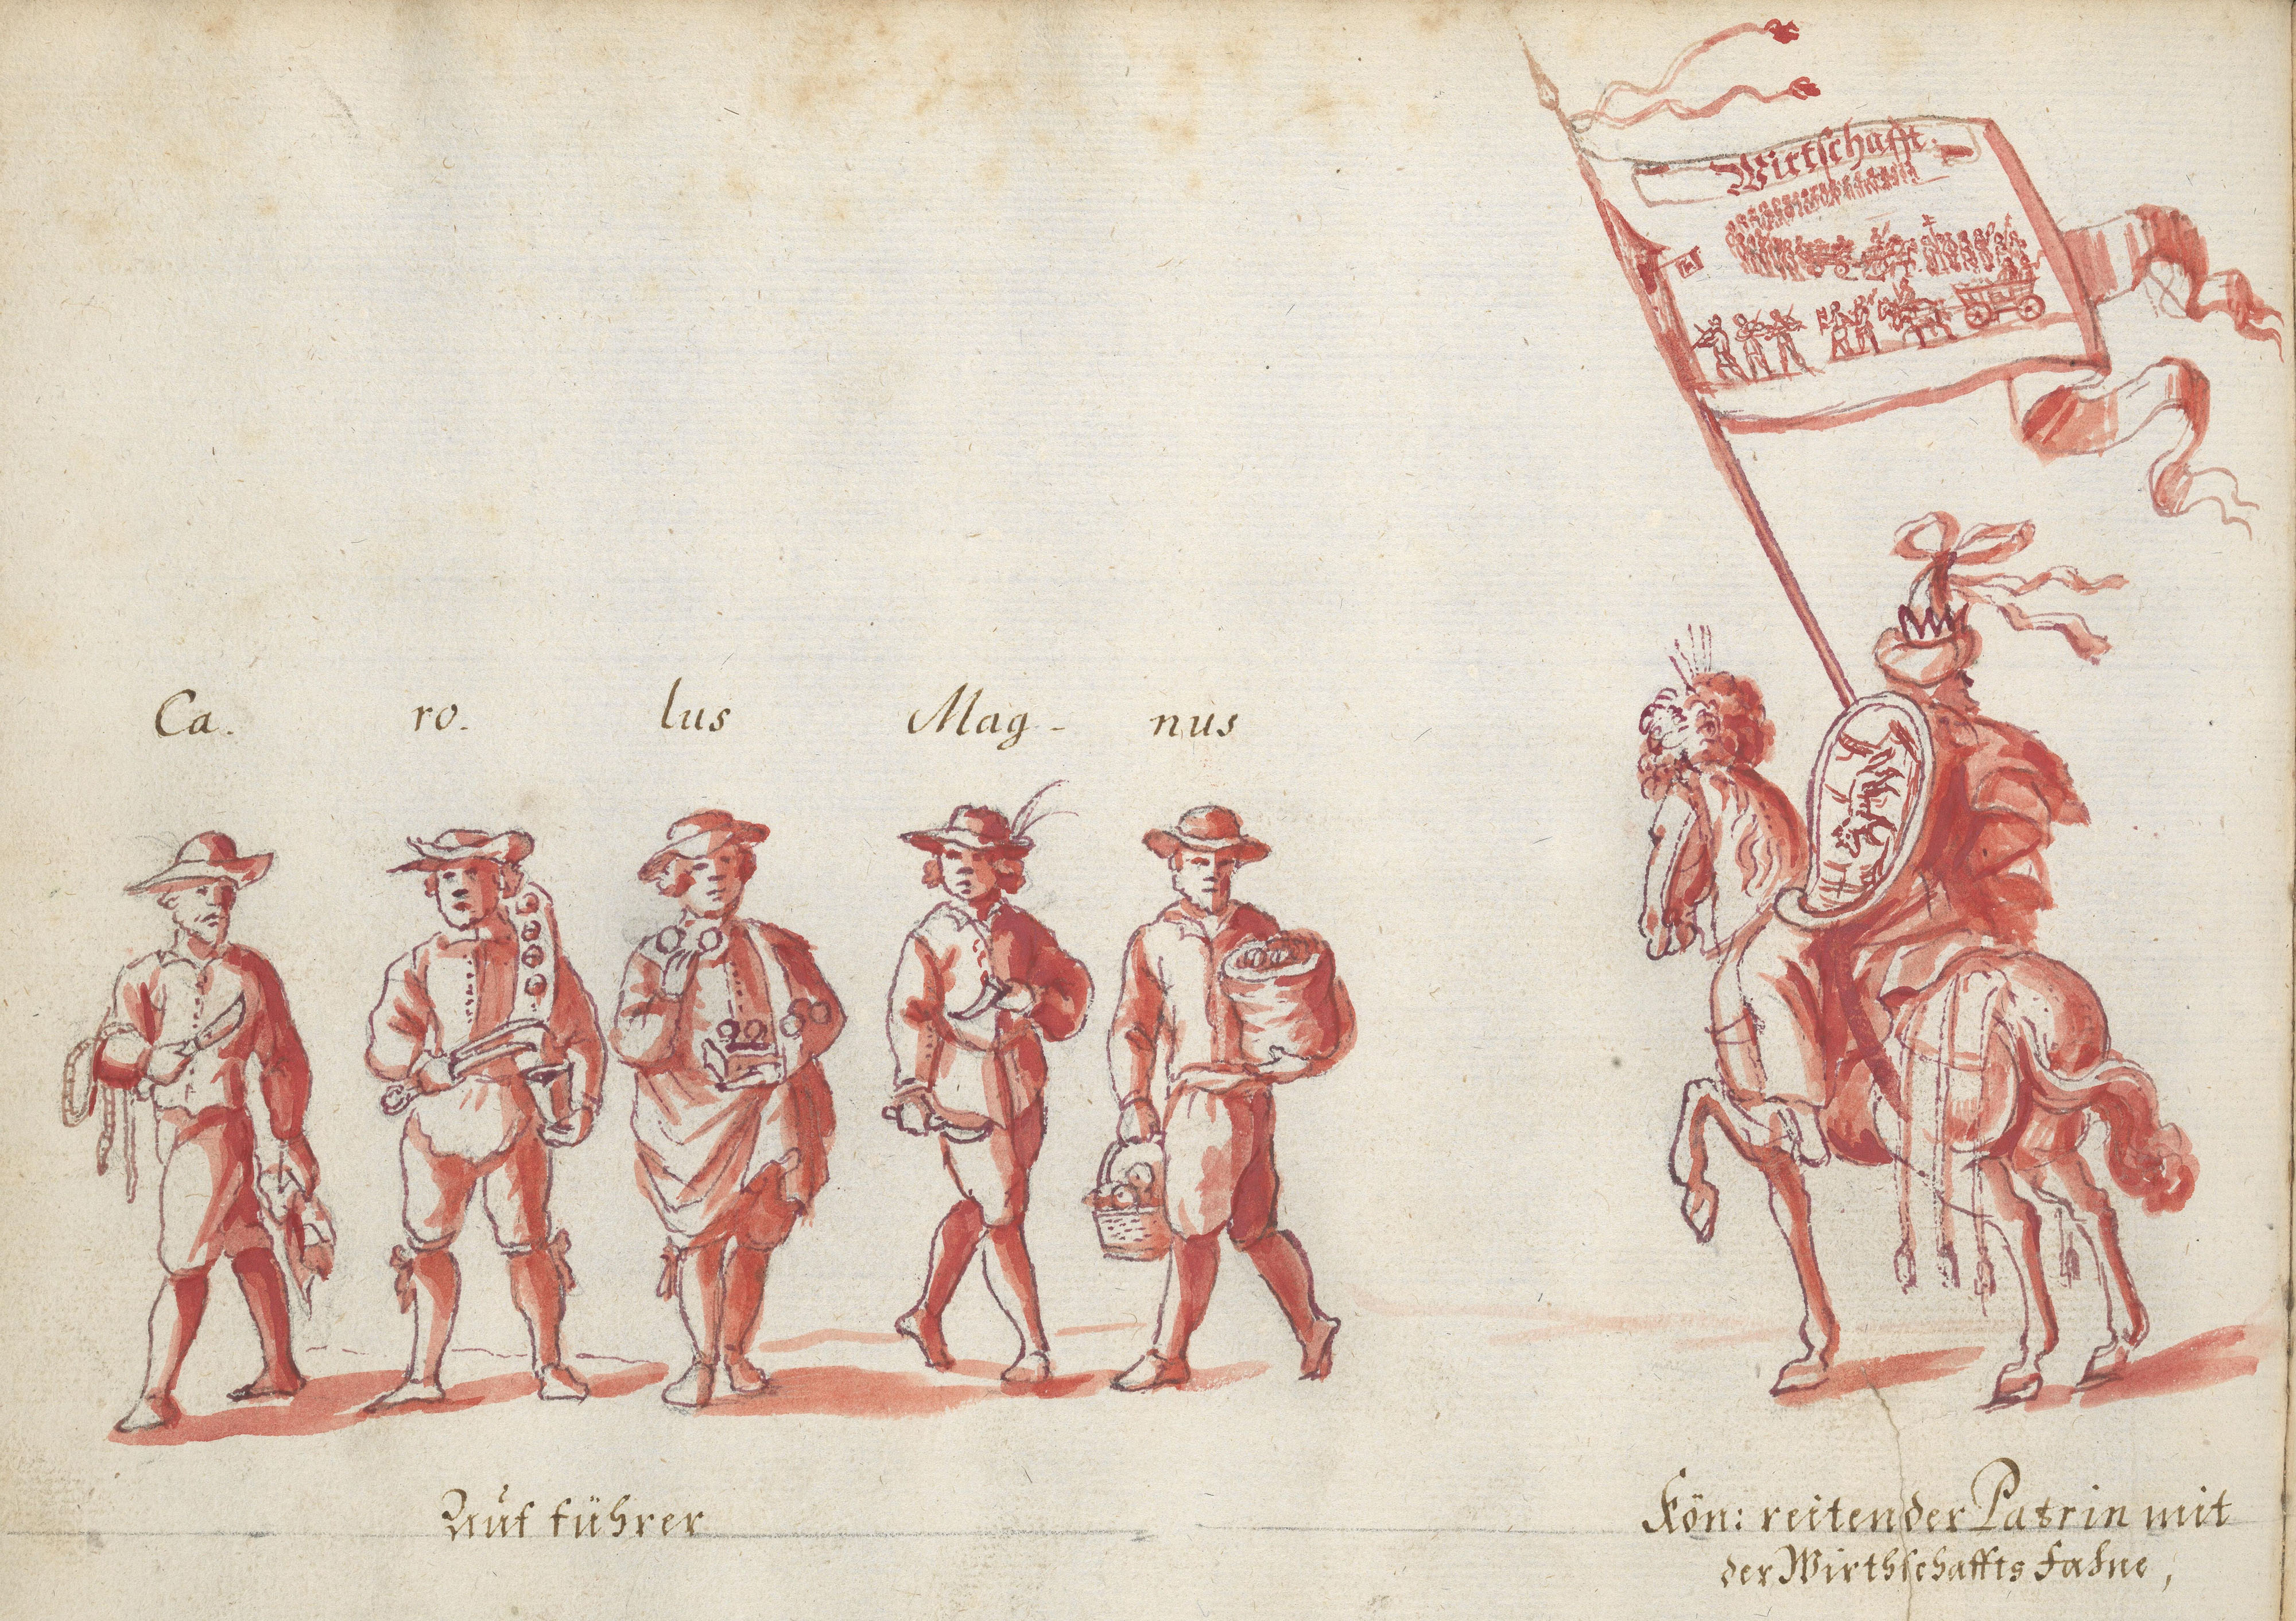 Wirtschafft.
Ca. ro. lus Mag- nus
Auf führer
Kön: reitender Patrin mit
der Wirthschaffts Fahne,